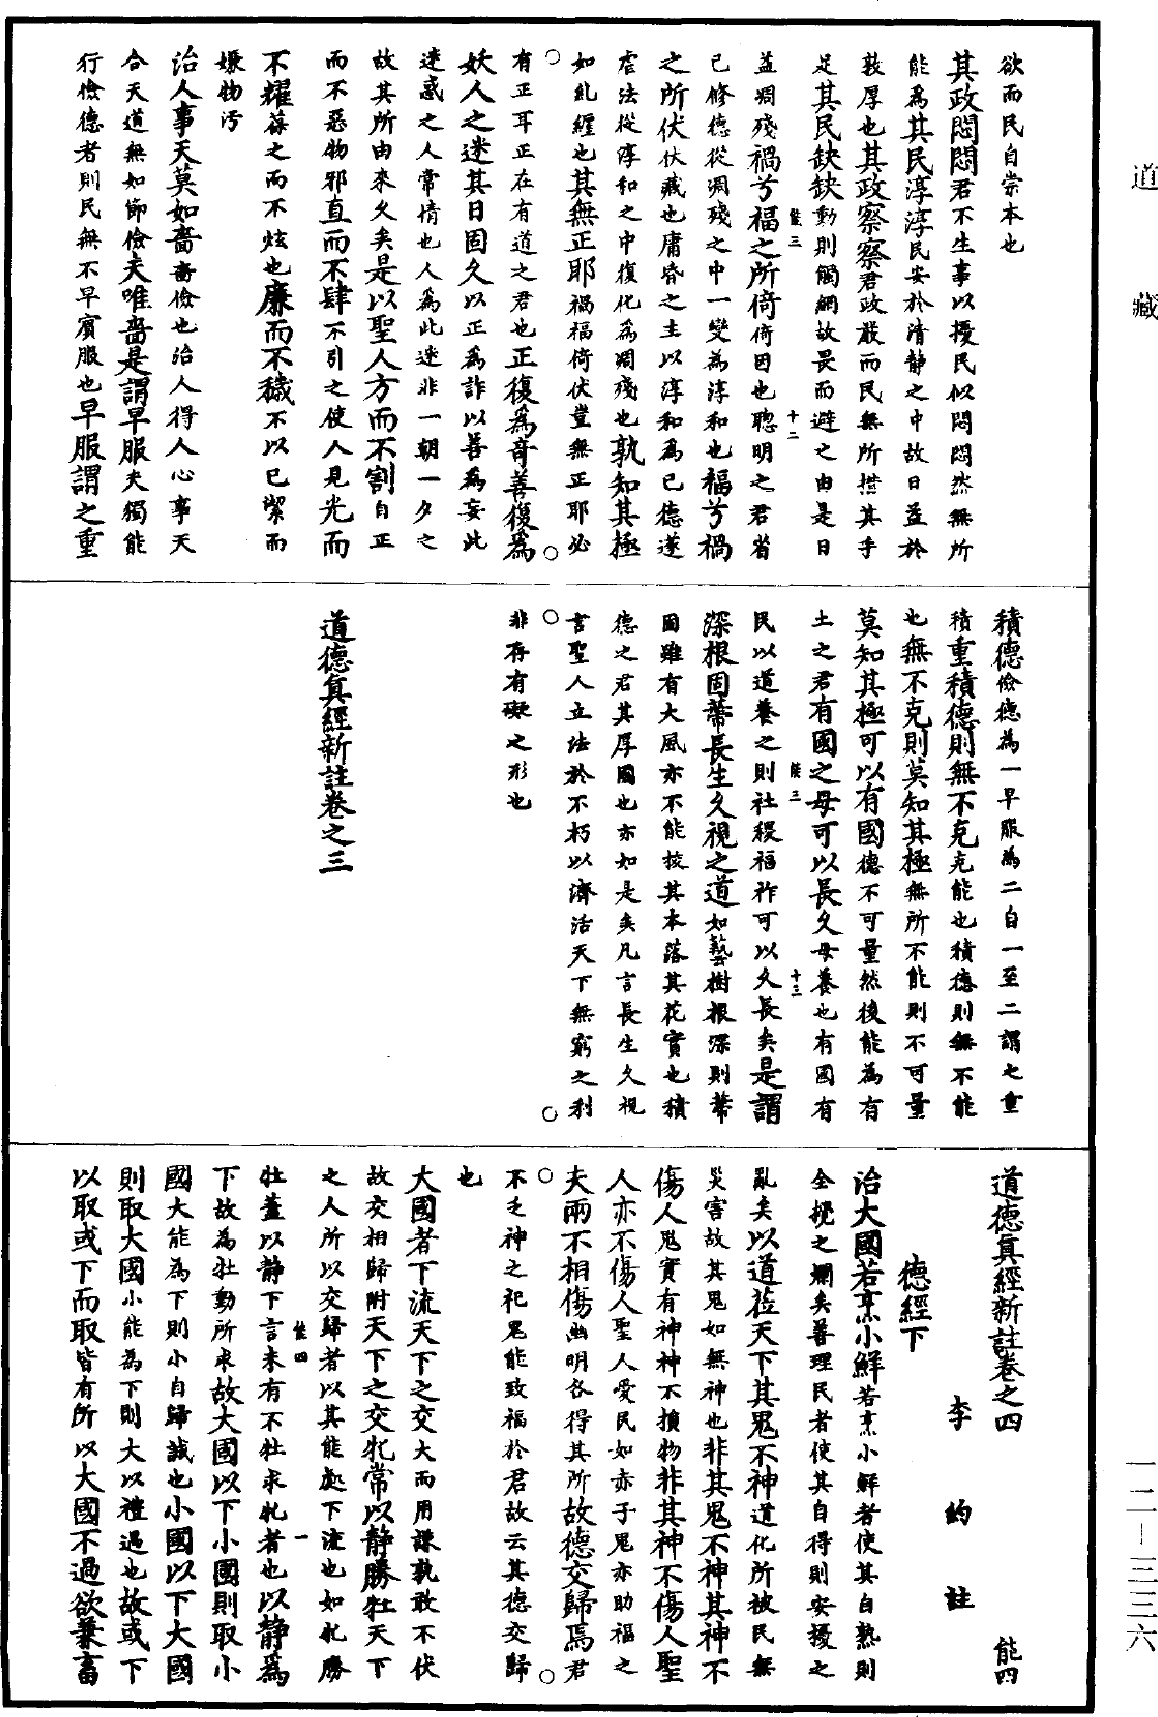 道藏
欲而民自崇本也
其政悶悶君不生事以擾民似悶悶然無所
能為其民淳淳民安於清静之中故日益於
敦厚也其政察察君政嚴而民無所措其手
足其民缺缺動則觸網故畏而避之由是日
能三 十二
益凋殘禍兮福之所倚倚因也聰明之君省
已修德從凋殘之中一變為淳和也福兮禍
之所伏伏藏也庸昏之主以淳和為已德遂
虐法從淳和之中復化為凋殘也孰知其極
如糺纏也其無正耶禍福倚伏豈無正耶必
有正耳正在有道之君也正復為奇善復為
妖人之迷其日固久以正為詐以善為妄此
迷惑之人常情也人為此迷非一朝一夕之
故其所由來久矣是以聖人方而不割自正
而不惡物邪直而不肆不引之使人見光而
不耀葆之而不炫也廉而不穢不以已絜而
嫌物汚
治人事天莫如嗇嗇儉也治人得人心事天
合天道無如節儉夫唯嗇是謂早服夫獨能
行儉德者則民無不早賓服也早服謂之重
積德儉德為一早服為二自一至二謂之重
積重積德則無不克克能也積德則無不能
也無不克則莫知其極無所不能則不可量
莫知其極可以有國德不可量然後能為有
土之君有國之母可以長久母養也有國有
能三 十三
民以道養之則社稷福祚可以久長矣是謂
深根固蒂長生久視之道如藝樹根深則蒂
固雖有大風亦不能拔其本落其花實也積
德之君其厚國也亦如是矣凡言長生久視
言聖人立法於不朽以濟活天下無窮之利
非存有礙之形也
道德真經新註卷之三
道德真經新註卷之四 能四
李約註
德經下
治大國若烹小鮮若烹小鮮者使其自熟則
全撓之爛矣善理民者使其自得則安擾之
亂矣以道莅天下其鬼不神道化所被民無
災害故其鬼如無神也非其鬼不神其神不
傷人鬼實有神神不損物非其神不傷人聖
人亦不傷人聖人愛民如赤子鬼亦助福之
夫兩不相傷幽明各得其所故德交歸焉君
不乏神之祀鬼能致福於君故云其德交歸
也
大國者下流天下之交大而用謙孰敢不伏
故交相歸附天下之交牝常以静勝牡天下
之人所以交歸者以其能處下流也如牝勝
能四 一
牡蓋以静下言未有不牡求牝者也以静為
下故為牡動所求故大國以下小國則取小
國大能為下則小自歸誠也小國以下大國
則取大國小能為下則大以禮過也故或下
以取或下而取皆有所以大國不過欲兼畜
一二－三三六